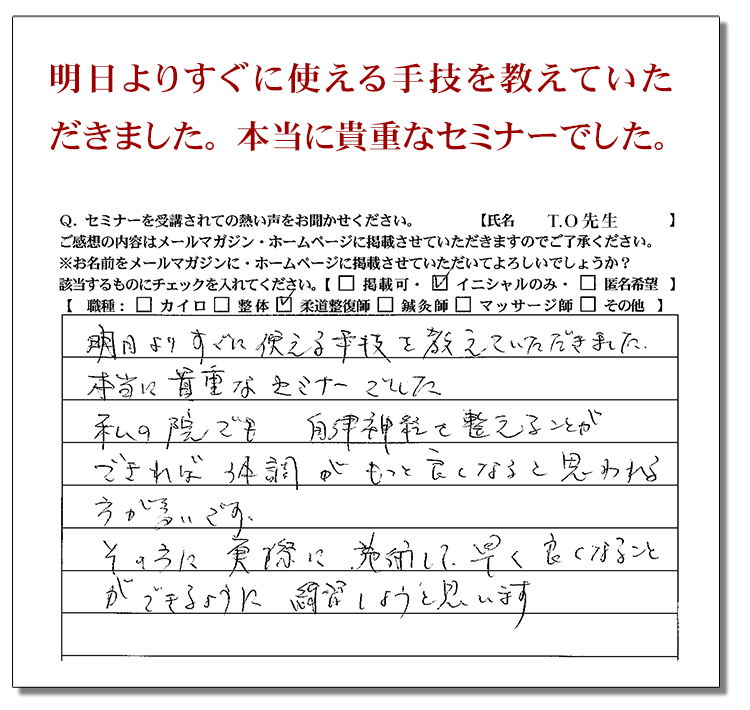 明日よりすぐに使える手技を教えていた
だきました。本当に貴重なセミナーでした。
Q. セミナーを受講されての熱い声をお聞かせください。 【氏名 T.O先生 】
ご感想の内容はメールマガジン・ホームページに掲載させていただきますのでご了承ください。
※お名前をメールマガジンに・ホームページに掲載させていただいてよろしいでしょうか？
該当するものにチェックを入れてください。【 □ 掲載可・ ☑ イニシャルのみ・ □ 匿名希望 】
【 職種： □ カイロ □ 整体 ☑ 柔道整復師 □ 鍼灸師 □ マッサージ師 □ その他 】
明日よりすぐに使える手技を教えていただきました.
本当に貴重なセミナーでした
私の院でも 自律神経を整えることが
できれば体調がもっと良くなると思われる
方が多いです.
その方に実際に施術して早く良くなること
ができるように練習しようと思います